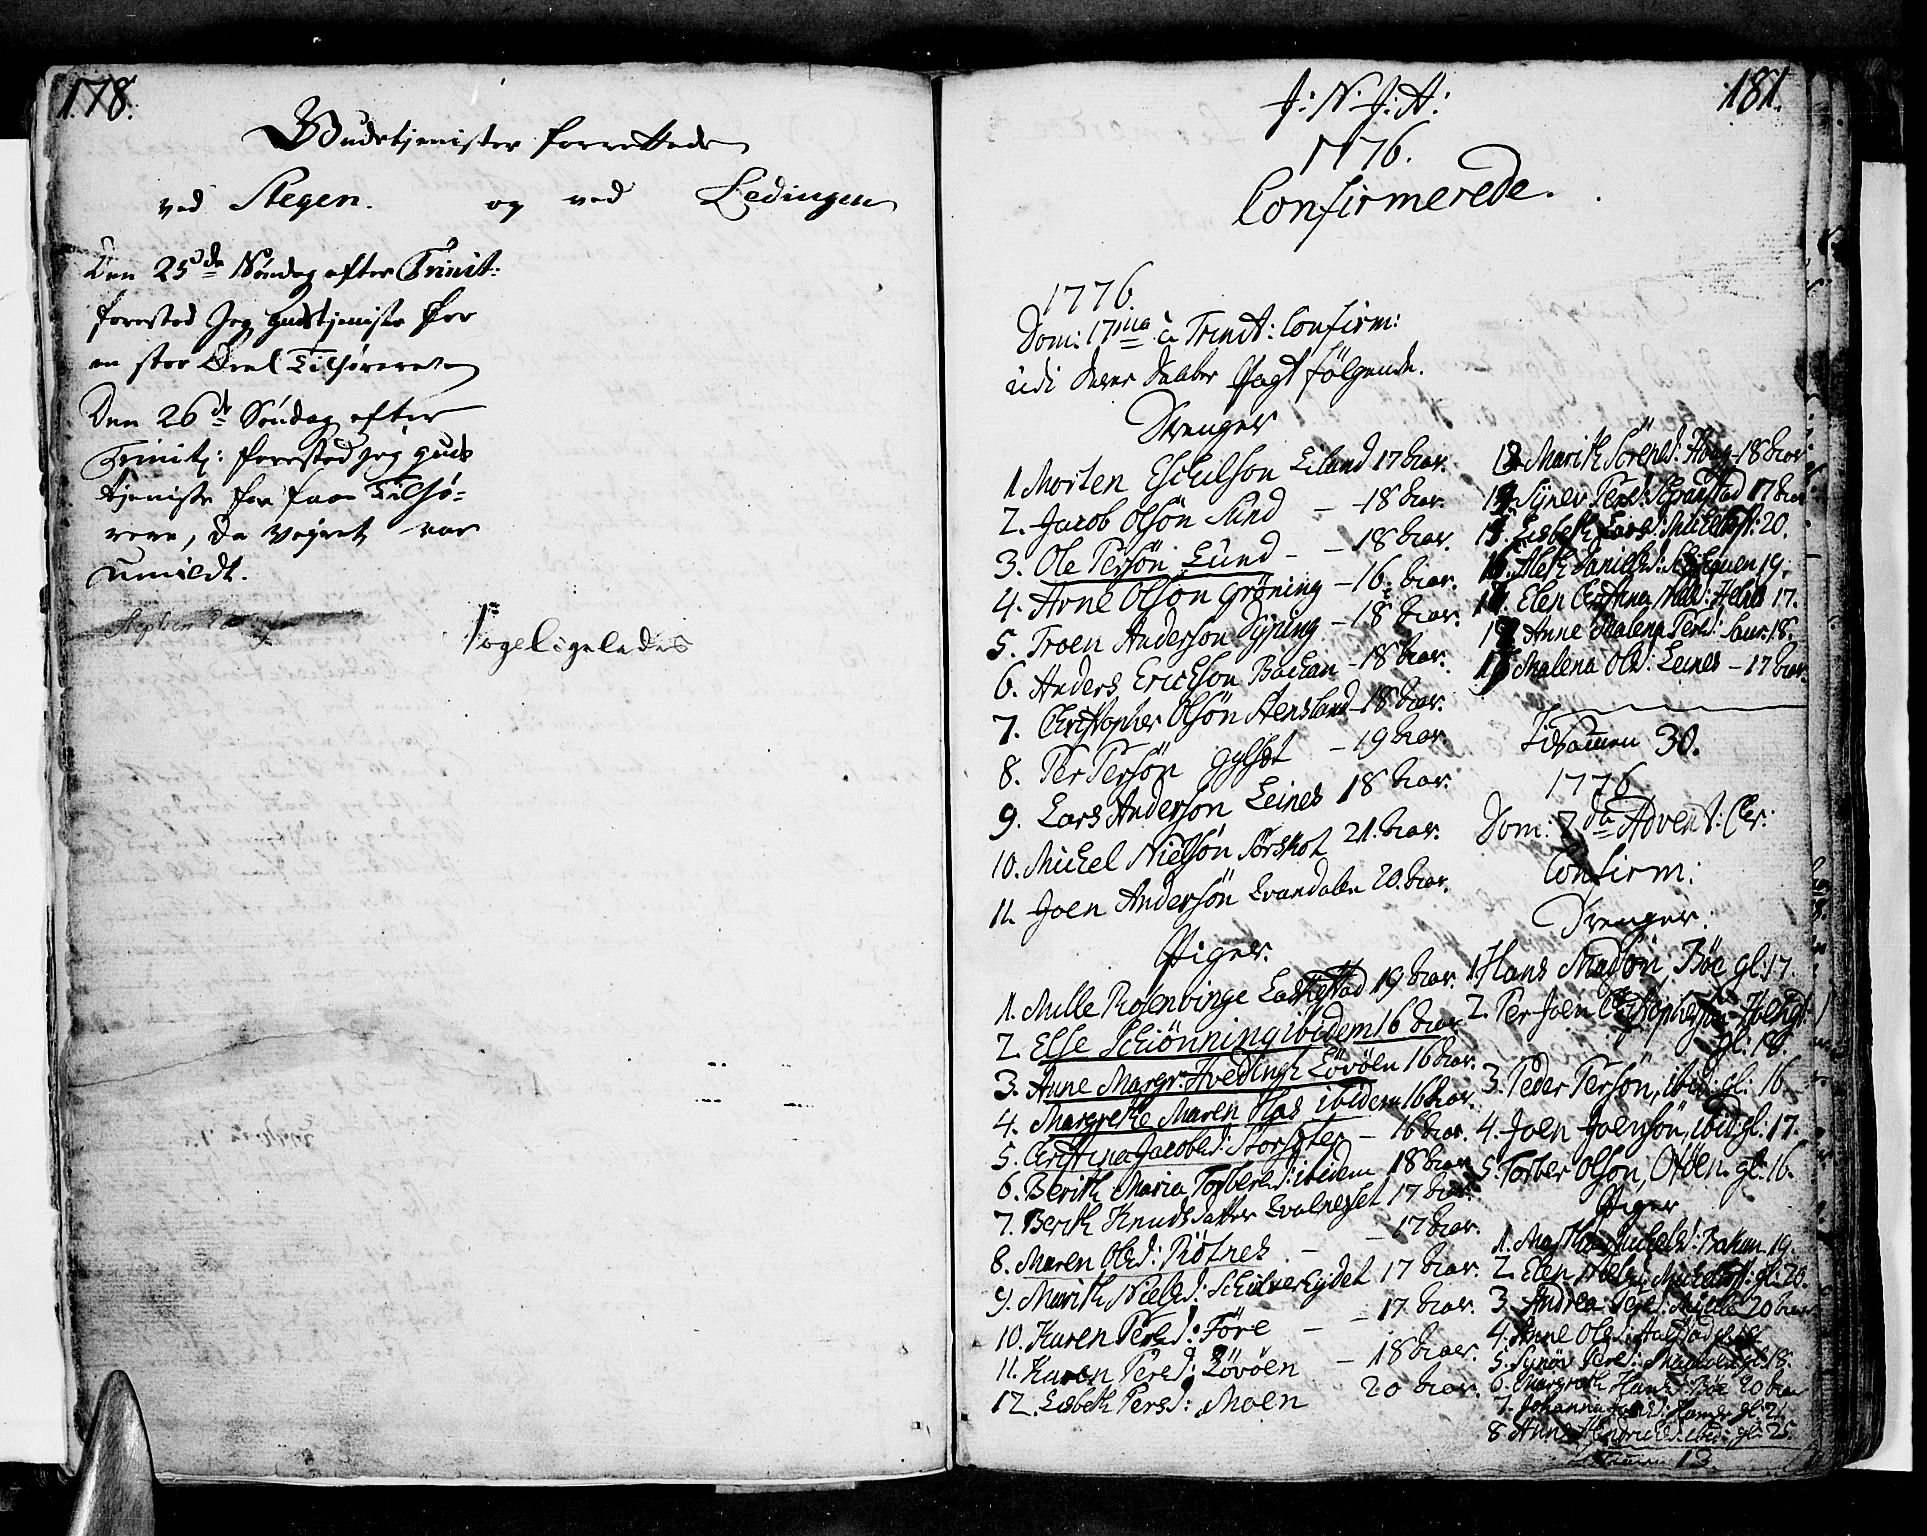 178.
Gudstjenister forrettede
ved Stegen. og ved Lødingen
Den 25de Søndag efter Trinit:
forestod Jeg gudstjeniste for
en stor Deel Tilhørere
Den 26de Søndag efter
Trinit: forestod jeg guds
tjeniste for faae Tilhø-
rere, da Vejret var
umildt.
ligeledes
181.
J: N: J: A:
1776.
Confirmerede.
1776.
Dom: 17ma à Trinit: Confirm:
udi deres Daabes Pagt følgende.
Drenger
1. Morten Eschilson Eiland 17 Aar.
2. Jacob Olsön Sund — 18 Aar.
3. Ole Persön Lund — 18 Aar.
4. Arne Olson Gröning — 16. Aar.
5. Troen Anderson Dyping — 18 Aar.
6. Anders Erichson Bachan — 18 Aar.
7. Christopher Olsön Stensland — 18 Aar.
8. Per Persön — 19 Aar.
9. Lars Anderson Leines 18 Aar.
10. Michel Nielsön Sörskot 21. Aar.
11. Joen Andersön Qvandalen 20. Aar.
Piger.
1. Mille Rosenvinge Laskestad 19 Aar.
2. Else Schiönning ibidem 16 Aar
3. Anne Margr: Hvedingh Lövöen 16 Aar.
4. Margrethe Maren Aas ibidem 16 Aar.
5. Christina Jacobsd: Storseter — 16 Aar.
6. Berith Maria Torbersd: ibidem 18 Aar
7. Berith Knudsdatter Qvalneset 17 Aar.
8. Maren Olsd: Rötnes — 17 Aar.
9. Marith Nielsd: Schielvereidet 17 Aar.
10. Karen Persd: Före — 17 Aar.
11. Karen Persd: Lövöen — 18 Aar.
12. Lisbeth Persd: Moen 20 Aar.
13 Marith Sörensd: Hoag 18 Aar
14. Synev Persd: 17 Aar
15. Lisbeth Larsd: 20.
16. Aleth Danielsd: 19.
17. Elen Christina 17.
18. Anne Malena Persd: 18.
19 Malena Olsd: Leines — 17 Aar.
Tilsammen 30.
1776
Dom: 2da Advent: Chr:
Confirm:
Drenger.
1 Hans Madsön, Böe gl: 17.
2. Per Joen Christophersön
gl: 18.
3. Peder Persön, ibid: gl: 16.
4. Joen Joensön, ibid: gl: 17.
5. Torber Olson, gl: 16.
Piger
1. Martha Michelsd: Bakan 19.
2. Elen gl: 20.
3. Andrea Persd: 20 Aar
4. Anne Olsd:
5. Synöv Persd: gl: 18.
6. Margreth Hansd: Böe 20 Aar
7. Johanna gl: 21.
8. Anne Hendrichsd: ibid: gl: 25.
Tilsammen 13.